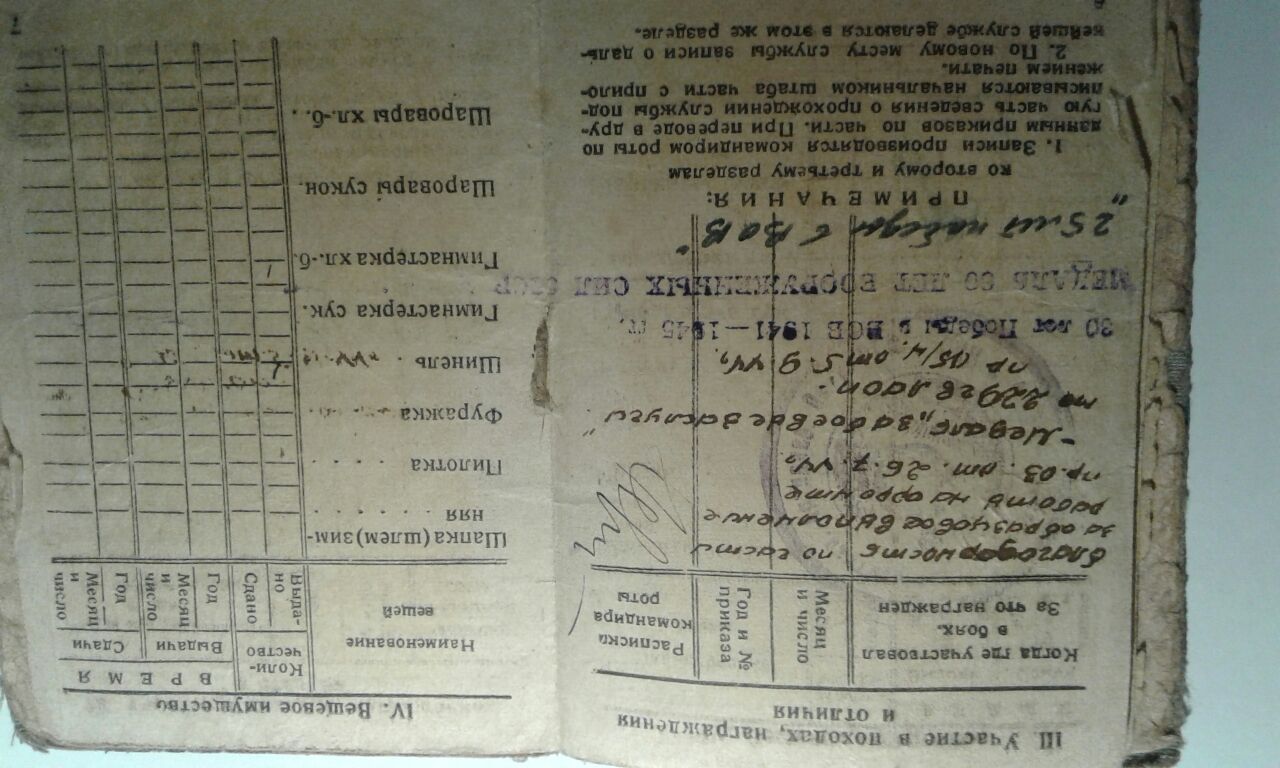 III. Участие в походах, награждения
и отличия
Когда где участвовал
в боях.
За что награжден
Месяц
и число
Год и №
приказа
Расписка
командира
роты
благодарность по части
за образцовое выполнение
работы на фронте
пр. 03. от 26.7.44г.
-Медаль „за боевые заслуги"
по 229
пр 05/н. от 5.9.44г.
30 лет Победы в ВОВ 1941—1945 гг.
МЕДАЛЬ 60 ЛЕТ ВООРУЖЕННЫХ СИЛ СССР
„25 лет победы в ВОВ"
ПРИМЕЧАНИЯ:
ко второму и третьему разделам
1. Записи производятся командиром роты по
данным приказов по части. При переводе в дру-
гую часть сведения о прохождении службы под-
писываются начальником штаба части с прило-
жением печати.
2. По новому месту службы записи о даль-
нейшей службе делаются в этом же разделе.
6
IV. Вещевое имущество
Наименование
вещей
Коли-
чество
ВРЕМЯ
Выдачи
Сдачи
Выда-
но
Сдано
Год
Месяц
и
число
Год
Месяц
и
число
Шапка (шлем) зим-
няя . . . . .
Пилотка . . . . .
Фуражка . . . . .
Шинель . .
Гимнастерка сук.
Гимнастерка хл.-б.
Шаровары сукон.
Шаровары хл.-б. .
7